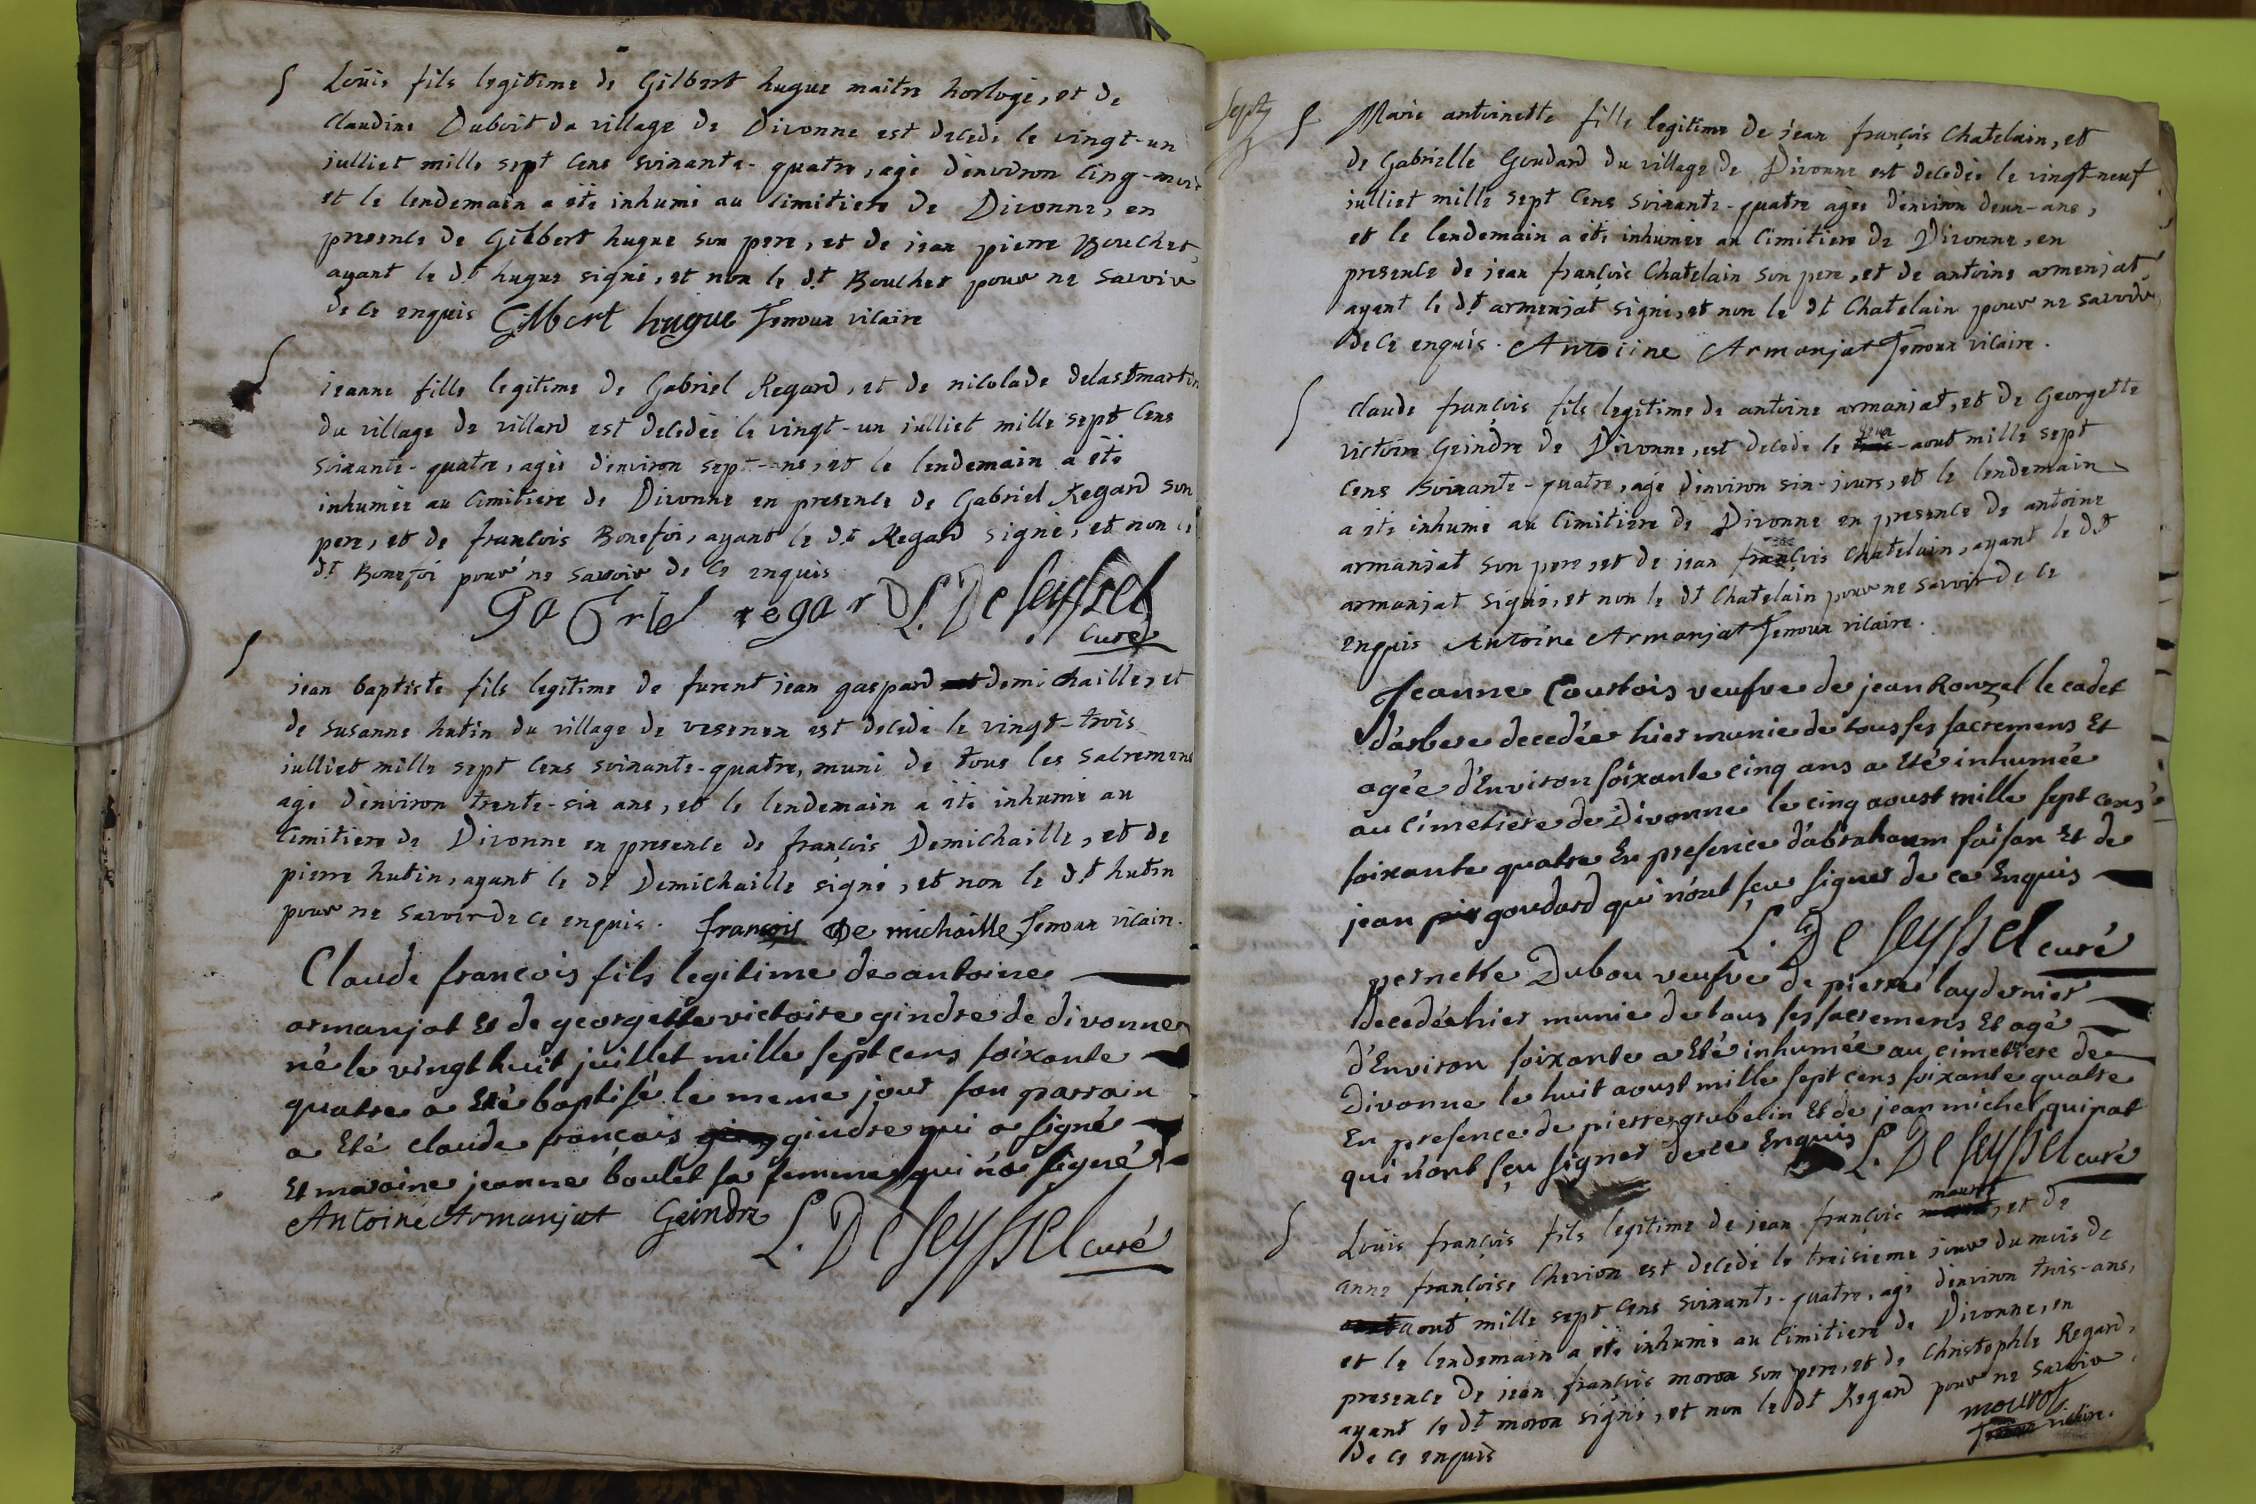 Loüis fils legitime de Gilbert hugue maitre horloge, et de
claudine Duboit du village de Divonne est decede le vingt-un
julliet mille sept cens soixante-quatre, agé d'environ cinq-mois
et le lendemain a été inhumé au cimitiere de Divonne, en
presence de Gilbert hugue son pere, et de jean pierre Bouchet,
ayant le dt hugue signé, et non le dt Bouchet pour ne savoir
de ce enquis Gilbert hugue femoux vicaire
jeanne fille legitime de Gabriel Regard, et de nicolade delastmartin
du village de villard est decedée le vingt-un julliet mille sept cens
soixante-quatre, agée d'environ sept-ans, et le lendemain a été
inhumée au cimitiere de Divonne en presence de Gabriel Regard son
pere, et de francois Bonefoi, ayant le dt Regard signé, et non le
dt Bonefoi pour ne savoir de ce enquis
Gabriel regard L. De Seyssel
curé
jean baptiste fils legitime de furent jean gaspard demichaille, et
de susanne hutin du village de vesenex est decedé le vingt-trois
julliet mille sept cens soixante-quatre, muni de tous les sacremens
agé d'environ trente-six ans, et le lendemain a été inhumé au
cimitiere de Divonne en presence de françois Demichaille, et de
pierre hutin, ayant le dt Demichaille signé, et non le dt hutin
pour ne savoir de ce enquis. françois De michaille femoux vicair.
Claude francois fils legitime de antoine
armanjat Et de georgette victoire gindre de divonne
né le vingt huit juillet mille sept cens soixante
quatre a Eté baptisé le meme jour son parrain
a Eté claude francois gindre qui a signé
Et maraine jeanne boulet sa femme qui n'a signé
Antoine Armanjat Geindre L. De Seyssel curé
Sept
Marie antoinette fille legitime de jean françois Chatelain, et
de Gabrielle Goudard du village de Divonne est decedée le vingt-neuf
julliet mille sept cens soixante-quatre agée d'environ deux-ans,
et le lendemain a été inhumée au cimitiere de Divonne, en
presence de jean françois Chatelain son pere, et de antoine armenjat,
ayant le dt armenjat signé, et non le dt Chatelain pour ne savoir
de ce enquis. Antoiine Armanjat femoux vicaire.
claude françois fils legitime de antoine armanjat, et de Georgette
victoire Geindre de Divonne, est decede le deux-aout mille sept
cens soixante-quatre, agé d'environ six-jours, et le lendemain
a été inhumé au cimitiere de Divonne en presence de antoine
armanjat son pere, et de jean françois Chatelain, ayant le dt
armanjat signé, et non le dt Chatelain pour ne savoir de ce
enquis Antoine Armanjat femoux vicaire.
Jeanne Courtois veufve de jean Ronzel le cadet
d'arbere decedée hier munie de tous ses sacremens Et
agée d'Environ soixante cinq ans a Eté inhumée
au cimetiere de Divonne le cinq aoust mille sept cens
soixante quatre En presence d'abraham faisan Et de
jean goudard qui n'ont sçu signer de ce Enquis
L. De Seyssel curé
pernette Dubou veufve de pierre laydernier
decedée hier munie de tous ses sacremens Et agé
d'Environ soixante a Eté inhumée au cimetiere de
Divonne le huit aoust mille sept cens soixante quatre
En presence de pierre grubelin Et de jean michel quipat
qui n'ont sçu signer de ce Enquis L. De Seyssel curé
Loüis françois fils legitime de jean françois mourot, et de
anne françoise Cherion est decedé le treisieme jour du mois de
aout mille sept cens soixante-quatre, agé d'environ trois-ans,
et le lendemain a été inhumé au cimitiere de Divonne, en
presence de jean françois moroa son pere, et de Christophle Regard,
ayant le dt moroa signé, et non le dt Regard pour ne savoir
de ce enquis mourot
vicaire.